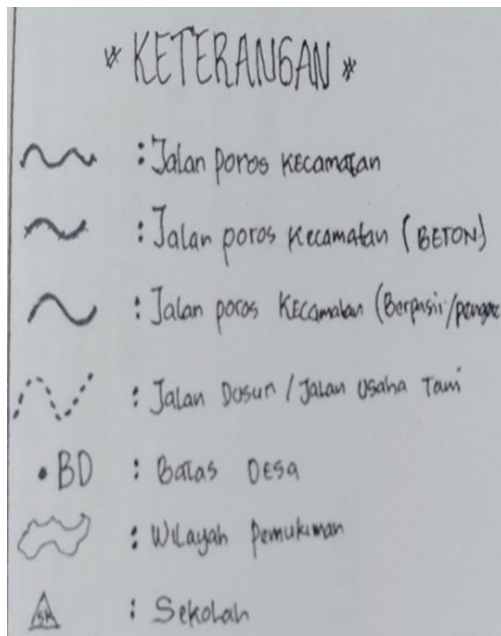 * KETERANGAN *
: Jalan poros Kecamatan
: Jalan poros Kecamatan (BETON)
: Jalan poros Kecamatan (Berpasir/
: Jalan Dusun / Jalan Usaha Tani
• BD : Batas Desa
: Wilayah Pemukiman
SK : Sekolah